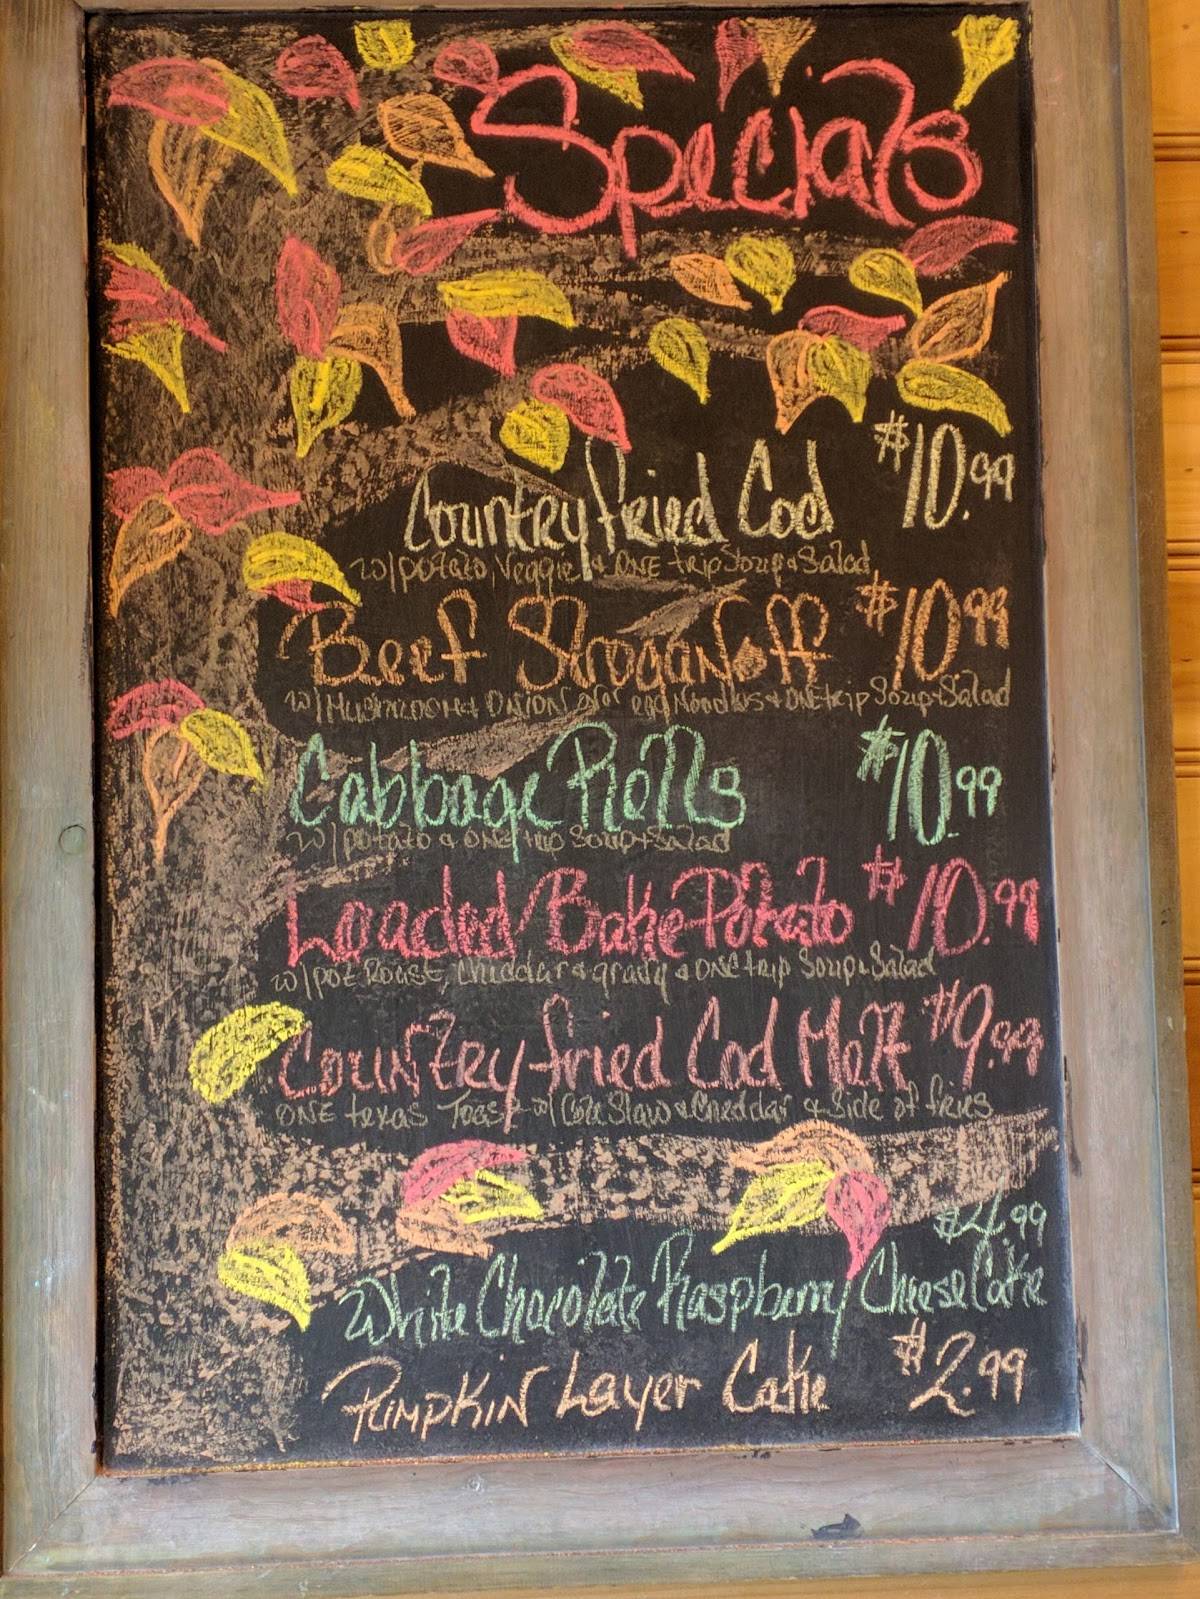 Specials
Country fried Cod $10.99
w/potato, veggie & ONE trip Soup & Salad
Beef Stroganoff $10.99
w/Mushroom & ONION over egg Noodles & ONE trip Soup & Salad
Cabbage Rolls $10.99
w/potato & ONE trip Soup & Salad
Loaded Bake Potato $10.99
w/pot Roast, Cheddar & gravy & ONE trip Soup & Salad
Country fried Cod Melt $9.99
ONE texas Toast w/Cole Slaw & Cheddar & Side of fries
$4.99
White Chocolate Raspberry Cheese Cake
Pumpkin Layer Cake $2.99